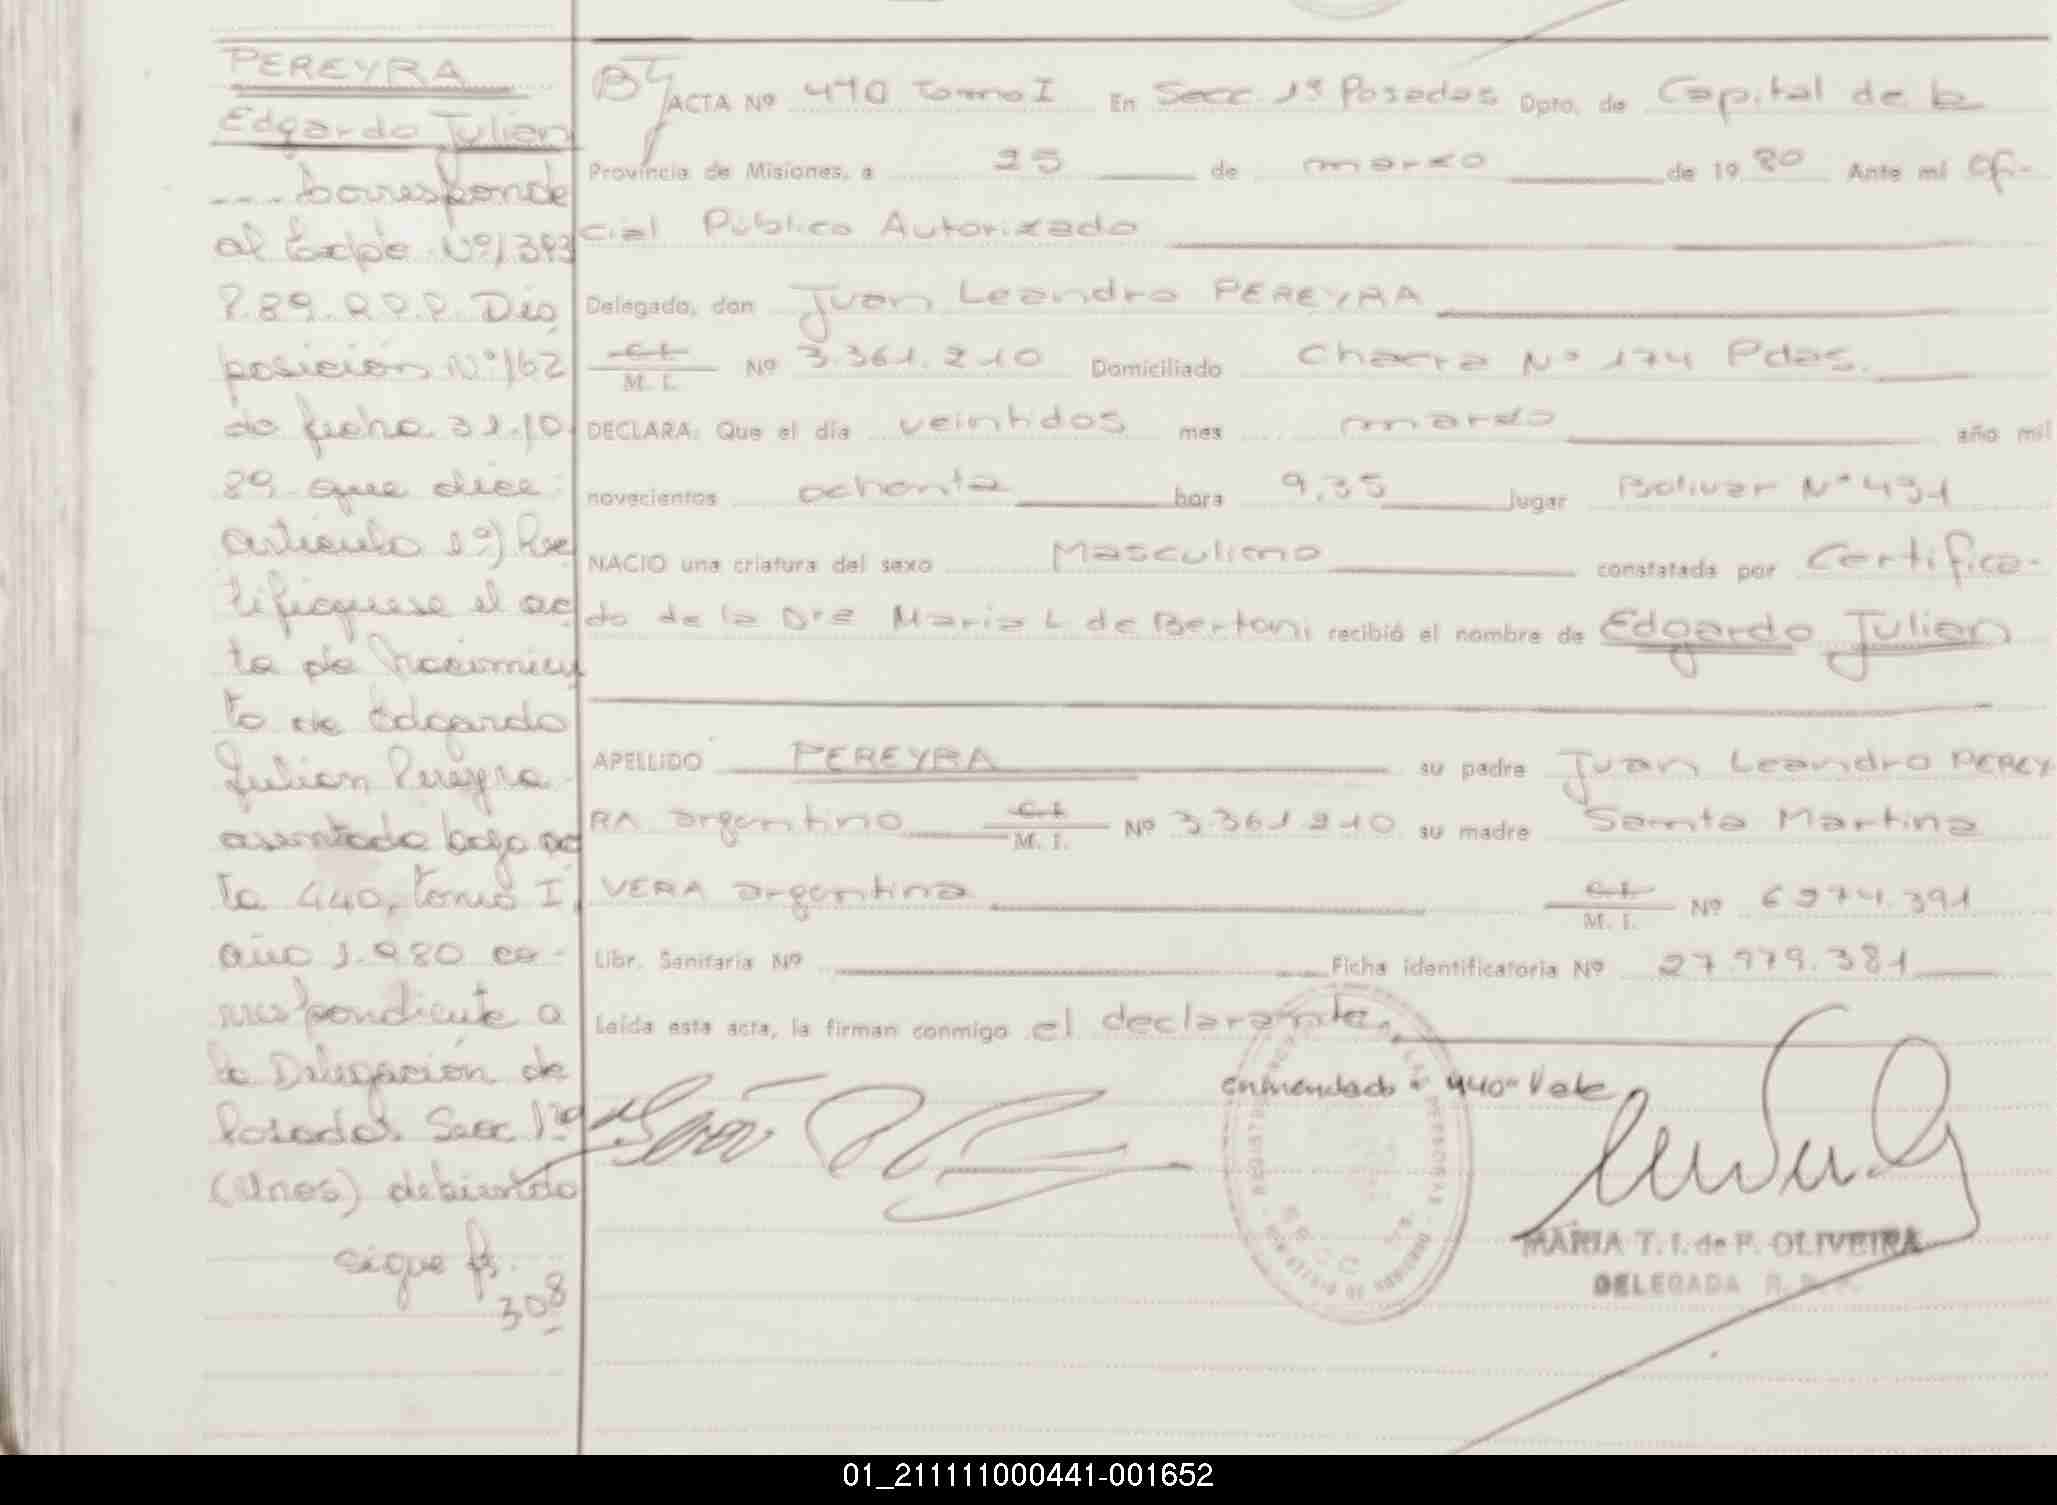 PEREYRA
Edgardo Julian
---- corresponde
al Expte Nº 1.393
P.89.R.P.P. Dis
posición Nº 162
de fecha 31.10.
89 que dice:
artículo 1º) Rec
tifíquese el ac
ta de Nacimien
to de Edgardo
Julian Pereyra
asentado bajo ac
ta 440, tomo I,
año 1.980 co-
rrespondiente a
la Delegación de
Posadas Secc 1ra
(Unos) debiendo
sigue fs.
308
ACTA Nº 440 tomo I En Secc 1ª Posadas Dpto. de Capital de la
Provincia de Misiones, a 25 de marzo de 19 80 Ante mi Ofi-
cial Público Autorizado
Delegado, don Juan Leandro PEREYRA
C.I.
M. I. Nº 3.361.210 Domiciliado Chacra Nº 174 Pdas.
DECLARA: Que el día veintidos mes marzo año mil
novecientos ochenta hora 9,35 lugar Bolivar Nº 431
NACIO una criatura del sexo Masculino constatada por Certifica-
do de la Dra Maria L de Bertoni recibió el nombre de Edgardo Julian
APELLIDO PEREYRA su padre Juan Leandro PEREY
RA argentino C.I.
M. I. Nº 3.361.210 su madre Santa Martina
VERA argentina C.I.
M. I. Nº 6274.391
Libr. Sanitaria Nº Ficha identificatoria Nº 27.979.381
Leída esta acta, la firman conmigo el declarante.
enmendado = 440= Vale
MARIA T. I. de P. OLIVEIRA
DELEGADA R. P. P.
SECC 1ª
01_211111000441-001652